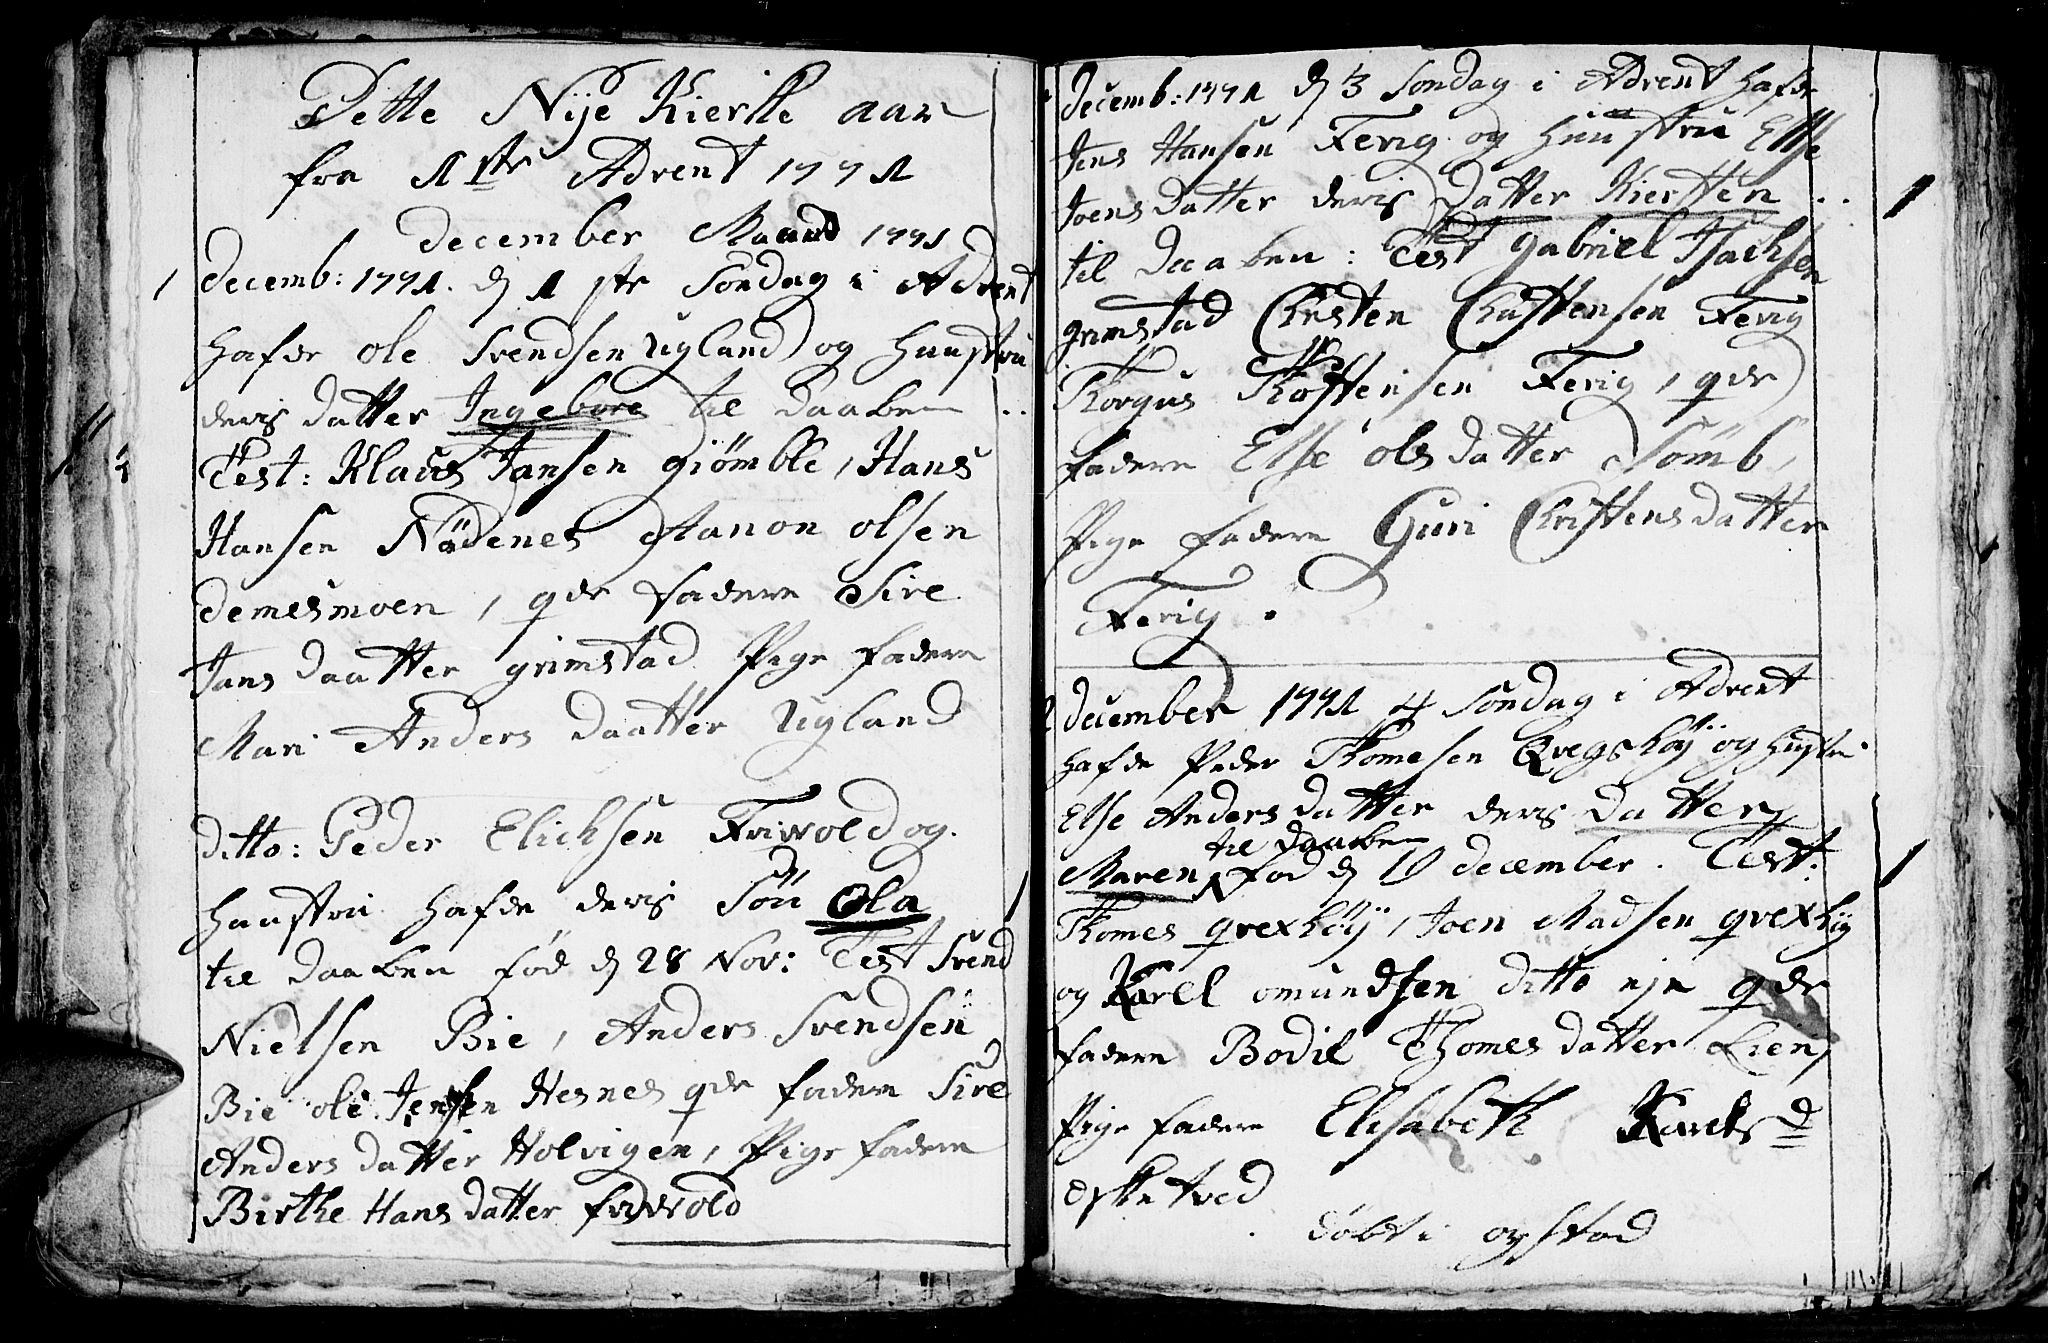 Dette Nije Kierke aar
fra 1ste Advent 1771
december Maaned 1771
decemb: 1771. d 1 ste Søndag i Advent
hafde ole Svendsen Ugland og huustru
deris datter Ingebore til daaben
Test: Klaus Jansen giömble, Hans
Hansen Nödenes Aanon olsen
demesmoen, qde fadere Sire
Jans daatter grimstad Pige fadere
Mari Anders daatter Ugland
ditto: Peder Elichsen Frivold og
huustru hafde deris Sön Ola
til daaben fød d 28 Nov: Test Svend
Nielsen Bie, Anders Svendsen
Bie ole Jensen Hesnes qde fadere Sire
Anders datter Holvigen, Pige fadere
Birthe Hans datter frivold
Decemb: 1771 d 3 Søndag i Advent hafde
Jens Hansen Fevig og huustru Else
Joens datter deris Datter Kiersten
til daaben: Test gabriel Isachsen
grimstad Christen Christensen Fevig
Torgus Fevig, qde
fadere Else ols datter Sömb,
Pige fadere Guri Christens datter
Fevig.
december 1771 4 Søndag i Advent
hafde Peder Thomesen Qvegshöÿ og hustru
Else Anders datter deris Datter
til daaben
Maren fød d december. Test:
Thomes qvexhöÿ, Joen Madsen qvexhöÿ
og Karel omundsen ditto eje qde
fadere Bodil Thomes datter Lien,
Pige fadere Elisabeth Karels d
Esketved
döbt i opstad